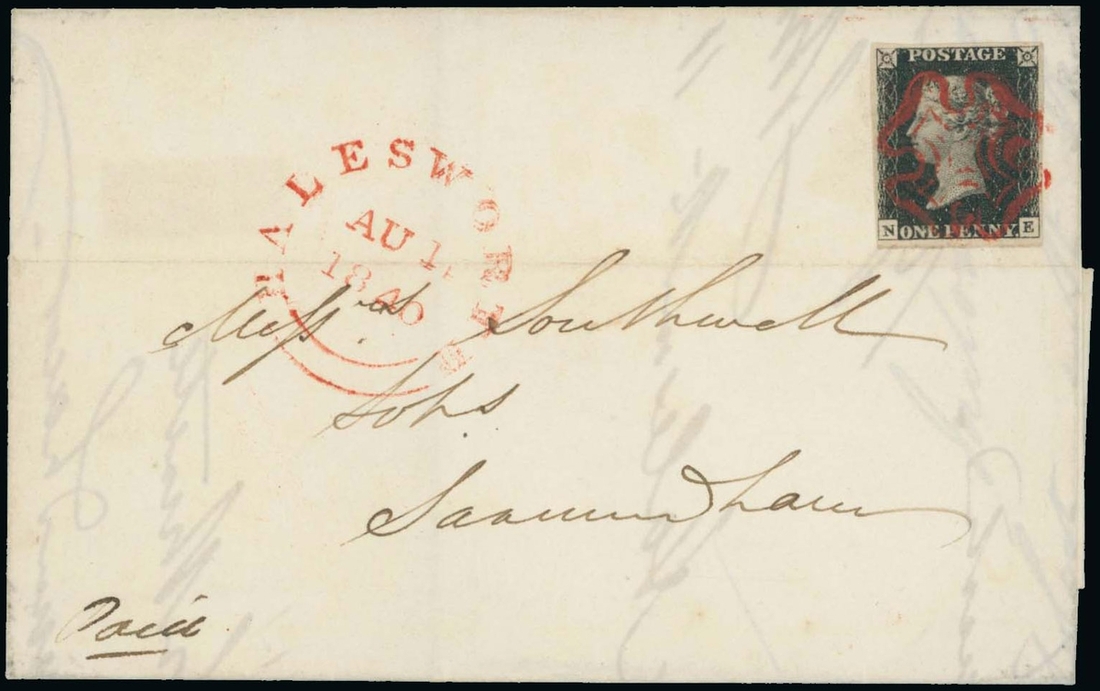 POSTAGE
N ONE PENNY. E
HALESWORTH
AU 1
1840
Messrs Southwell
Sols
Saxmundham
Paid